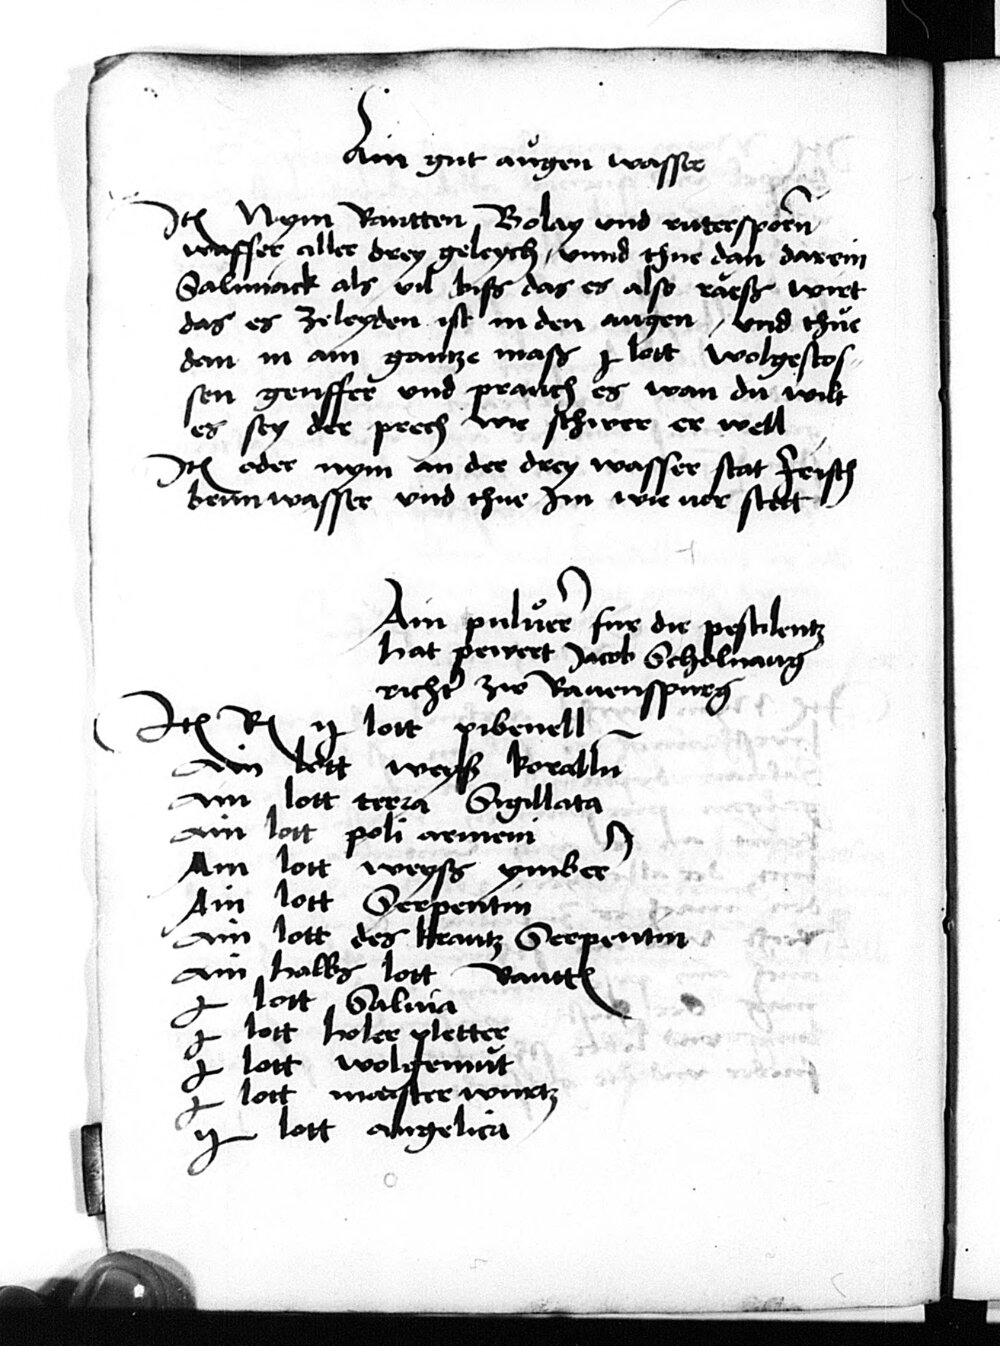 Ain gut augen wasser
Itm Nym Rautten Bolay vnd rittersporn
wasser aller drey geleych, vnnd thue dan darein
Salmiack als vil biß das es also räeß wirt
das es zeleyden ist in den augen, vnd thue
dan in ain gantze maß j lott wolgestos-
sen geniffer vnd prauch es wan du wilt
es sey der prech wie schwer er well
Itm oder nym an der drey wasser stat frisch
brunwasser vnd thue Im wie uor stett
Ain puluer für die pestilentz
hat pewert Jacob Schelnaug
richter zw Rauenspurg
Itm R ij lott pibenell
Ain lott weyß koralln
Ain lott terra Sigillata
Ain lott poli armeni
Ain lott weyß ymber
Ain lott Serpentin
Ain lott des krautz Serpentin
Ain halbs lott Rautten
j lott Saluia
j lott holer pletter
j lott wolgemut
j lott maister wurtz
ij lott angelica